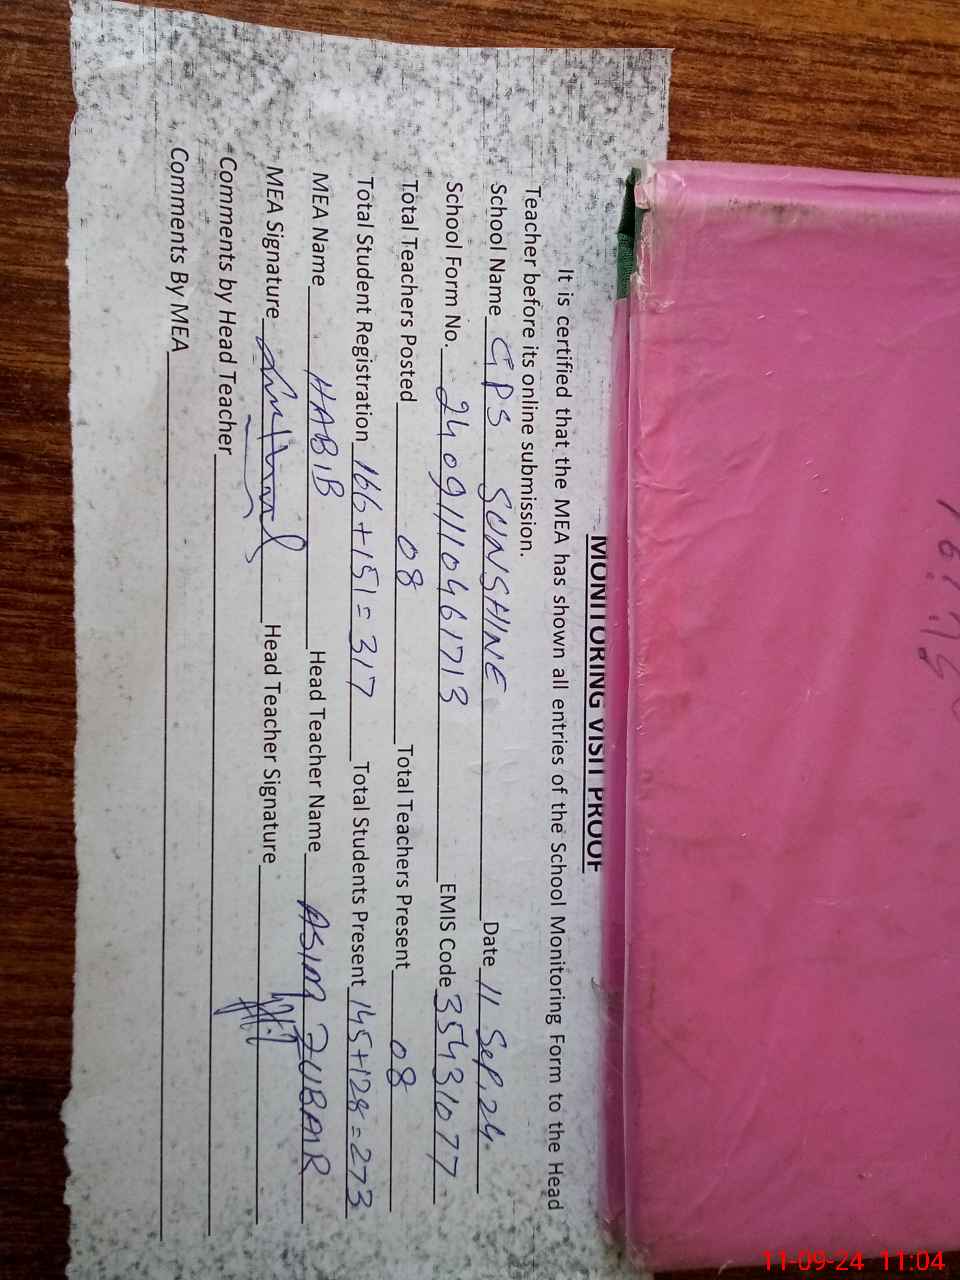 MONITORING VISIT PROOF
It is certified that the MEA has shown all entries of the School Monitoring Form to the Head
Teacher before its online submission.
School Name GPS SUNSHINE Date 11 Sep, 24
School Form No. 2409111046 1713 EMIS Code 35431077
Total Teachers Posted 08 Total Teachers Present 08
Total Student Registration 166+151=317 Total Students Present 145+128=273
MEA Name HABIB Head Teacher Name ASIM ZUBAIR
MEA Signature Head Teacher Signature
Comments by Head Teacher
Comments By MEA
11-09-24 11:04